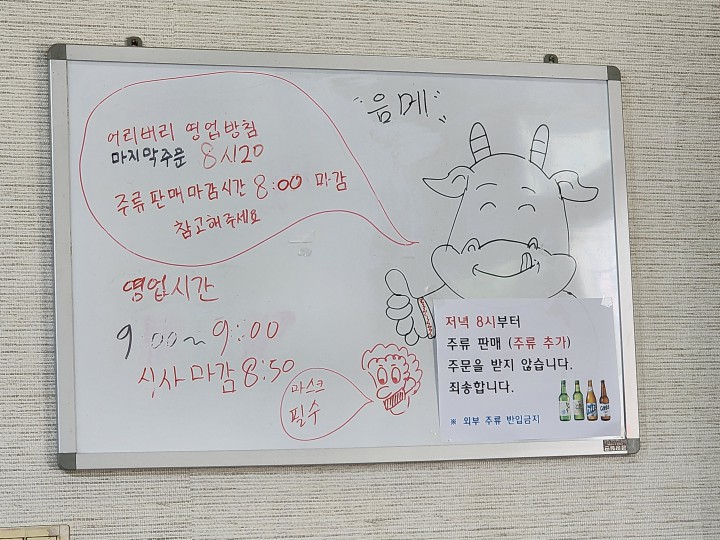 어리버리 영업방침
마지막주문 8시20
주류판매마감시간 8:00 마감
참고해주세요
음메
영업시간
9:00~9:00
식사마감 8:50
마스크
필수
저녁 8시부터
주류 판매 (주류 추가)
주문을 받지 않습니다.
죄송합니다.
※ 외부 주류 반입금지